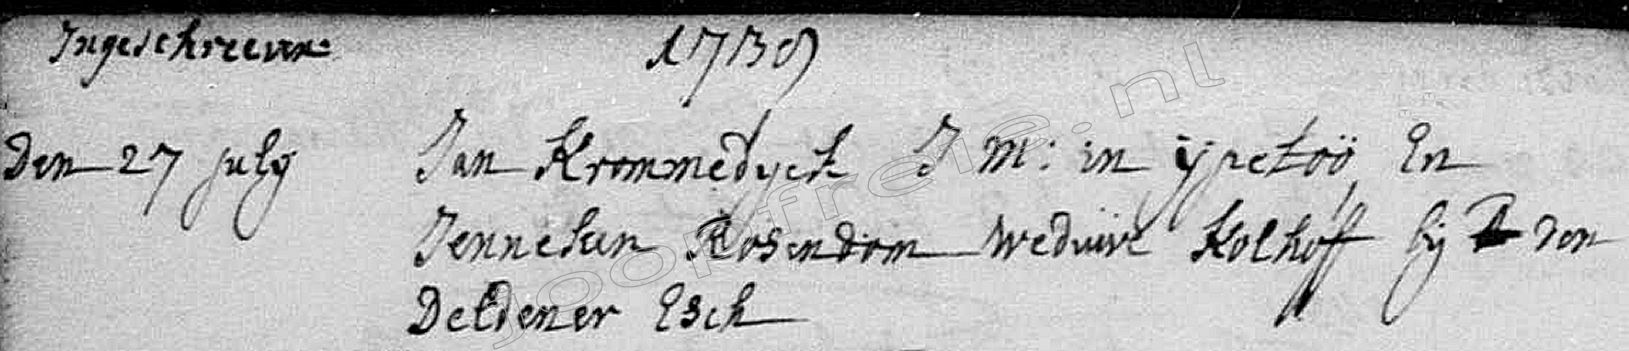 Ingeschreeven 1739
Den 27 july Jan Krommedyck J M: in ÿpeloÿ En
Jenneken Rosendom weduwe Kolhoff bij den
Deldener Esch
joopfreie.nl